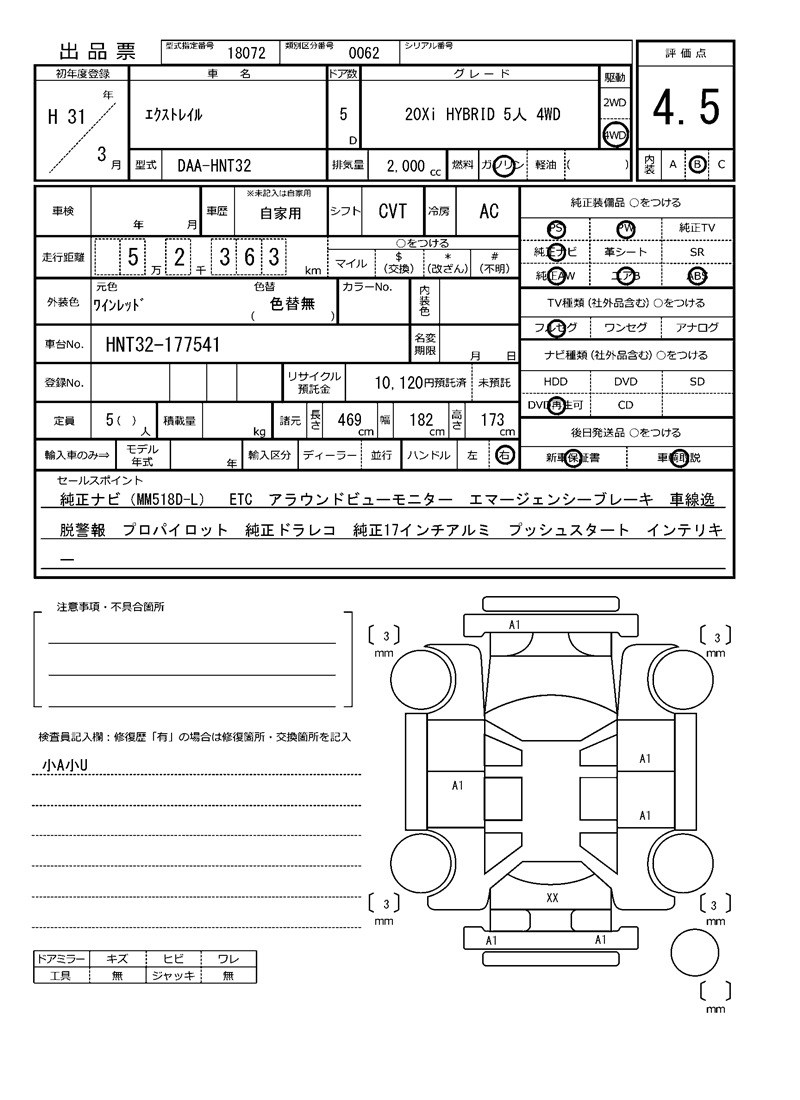 出品票 型式指定番号 18072 類別区分番号 0062 シリアル番号 評価点
初年度登録 車 名 ドア数 グレード 駆動
H 31 年 3 月 エクストレイル 5 D 20Xi HYBRID 5人 4WD 2WD 4WD 4.5
型式 DAA-HNT32 排気量 2,000 cc 燃料 ガソリン 軽油 ( ) 内装 A B C
車検 年 月 車歴 ※未記入は自家用 自家用 シフト CVT 冷房 AC
走行距離 5 万 2 千 3 6 3 km
○をつける
マイル $ (交換) * (改ざん) # (不明)
外装色 元色 ワインレッド 色替 色替無 ( ) カラーNo. 内装色
車台No. HNT32-177541 名変期限 月 日
登録No. リサイクル預託金 10,120円預託済 未預託
定員 5( ) 人 積載量 kg 諸元 長さ 469 cm 幅 182 cm 高さ 173 cm
輸入車のみ⇒ モデル年式 年 輸入区分 ディーラー 並行 ハンドル 左 右
純正装備品 ○をつける
PS PW 純正TV
純正ナビ 革シート SR
純正AW エアB ABS
TV種類(社外品含む)○をつける
フルセグ ワンセグ アナログ
ナビ種類(社外品含む)○をつける
HDD DVD SD
DVD再生可 CD
後日発送品 ○をつける
新車保証書 車輌取説
セールスポイント
純正ナビ(MM518D-L) ETC アラウンドビューモニター エマージェンシーブレーキ 車線逸
脱警報 プロパイロット 純正ドラレコ 純正17インチアルミ プッシュスタート インテリキ
ー
注意事項・不具合箇所
検査員記入欄：修復歴「有」の場合は修復箇所・交換箇所を記入
小A小U
ドアミラー キズ ヒビ ワレ
工具 無 ジャッキ 無
A1
3 mm
3 mm
A1
A1
A1
XX
3 mm
3 mm
A1 A1
mm